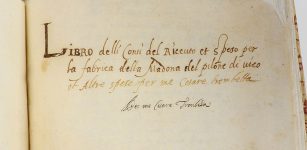 LIBRO delli Conti del Riceuto et Speso per
la fabrica della Madona del pilone di vico
et Altre spese per me Cesare trombetta
per me Cesare Trombetta